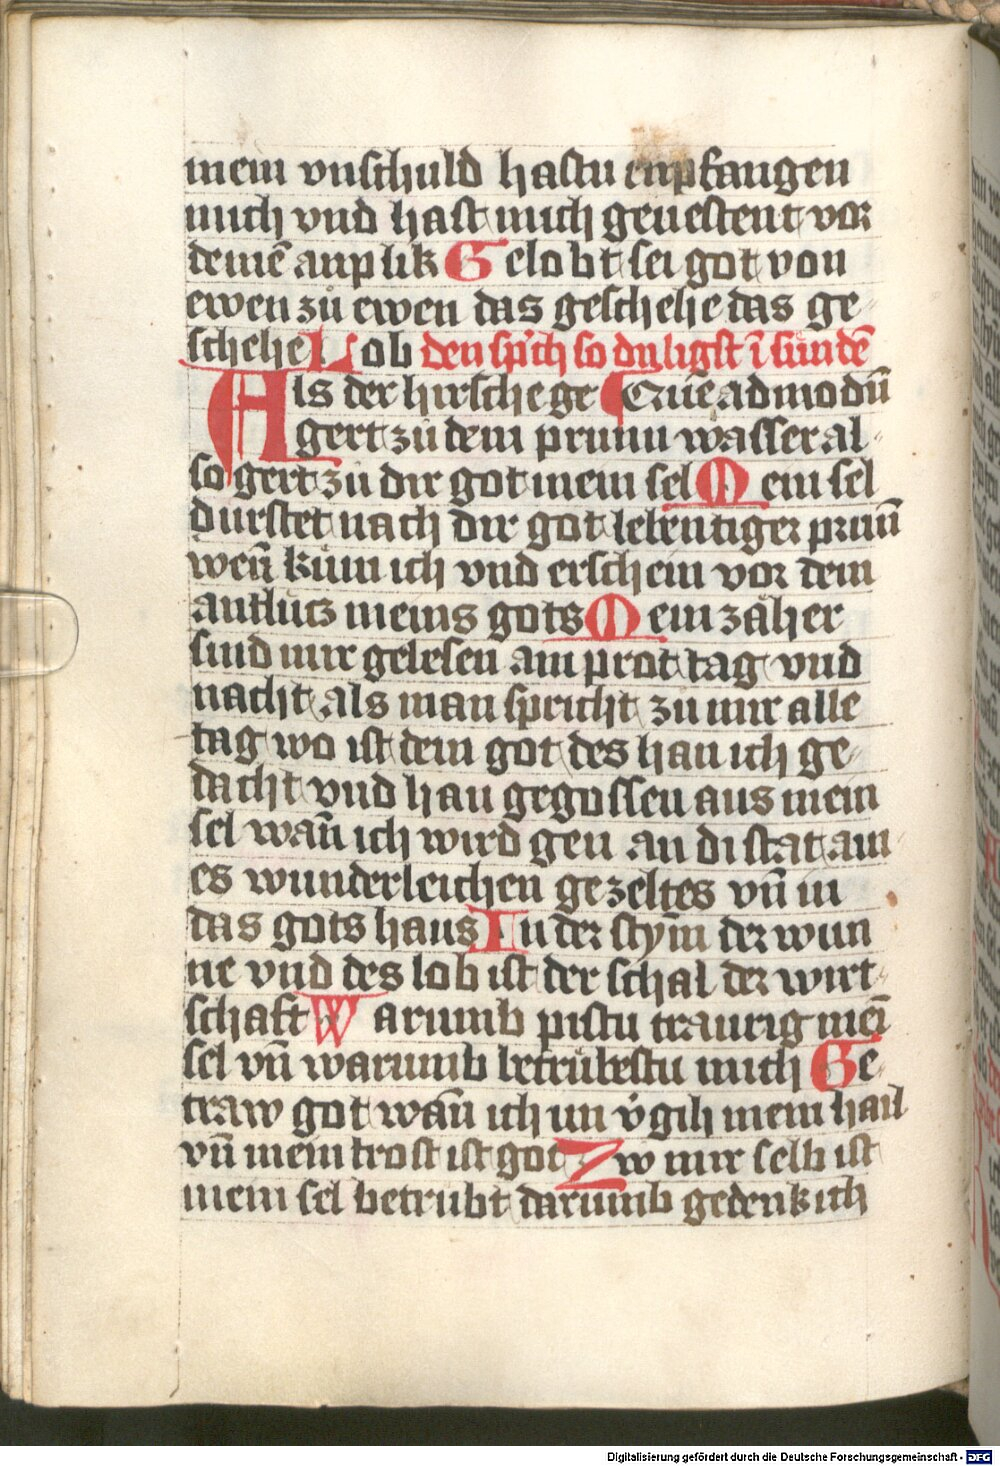 mein vnschuld hastu enpfangen
mich vnd hast mich geuestent vor
deinē anplik Gelobt sei got von
ewen zů ewen das geschehe das ge
schehe Lob den sp̄ch so du ligst ī sündē
Als der hirsche ge Quēadmodū
gert zů dem prunn wasser al
so gert zů dir got mein sel Mein sel
durstet nach dir got lebentiger prun̄
wen̄ küm ich vnd erschein vor dem
antlütz meins gots Mein zäher
sind mir gelesen am prot tag vnd
nacht als man spricht zu mir alle
tag wo ist dein got des han ich ge
dacht vnd han gegossen aus mein
sel wan̄ ich wird gen an di stat ain
es wunderleichen gezeltes vn̄ in
das gots haus In der stym̄ der wun
ne vnd des lob ist der schal der wirt
schaft Warumb pistu traurig meī
sel vn̄ warumb betrübestu mich Ge
traw got wan̄ ich im v̓gih mein hail
vn̄ mein trost ist got Zw mir selb ist
mein sel betrubt darumb gedenk ich
Digitalisierung gefördert durch die Deutsche Forschungsgemeinschaft - DFG